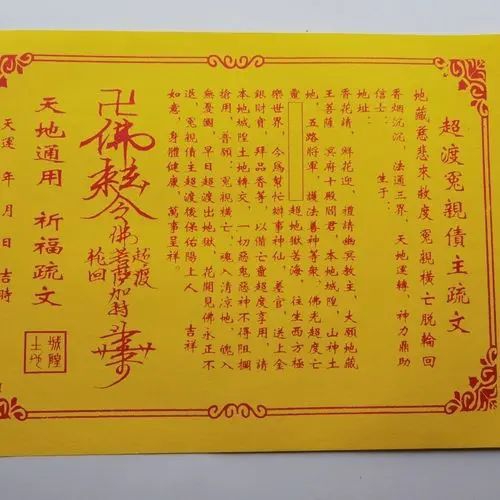 超渡冤親債主疏文
地藏慈悲來救度冤親橫亡脫輪迴
香烟沉沉,法通三界,天地運轉,神力鼎助
信士: 生于:
地址:
香花請,鮮花迎,禮請幽冥教主,大願地藏
王菩薩,冥府十殿閻君,本地城隍,山神土
地,五路將軍,護法善神等眾,佛光超度亡
靈 超地獄苦海,往生西方極
樂世界,今為幫忙辦事神仙,善官,送上金
銀財寶,拜品香等,以備亡靈超度享用,請
本地城隍土地轉交,一切惡鬼惡神不得阻攔
搶用,普願:冤親橫亡,魂入清凉地,魄入
無憂園,早日超渡出地獄,花開見佛永正不
退,冤親債主超渡後保佑陽上人 吉祥
如意,身體健康,萬事呈祥。
超渡
卍佛敕令佛菩薩加持
輪回
天地通用 祈福疏文
城隍
土地
天運 年 月 日 吉時